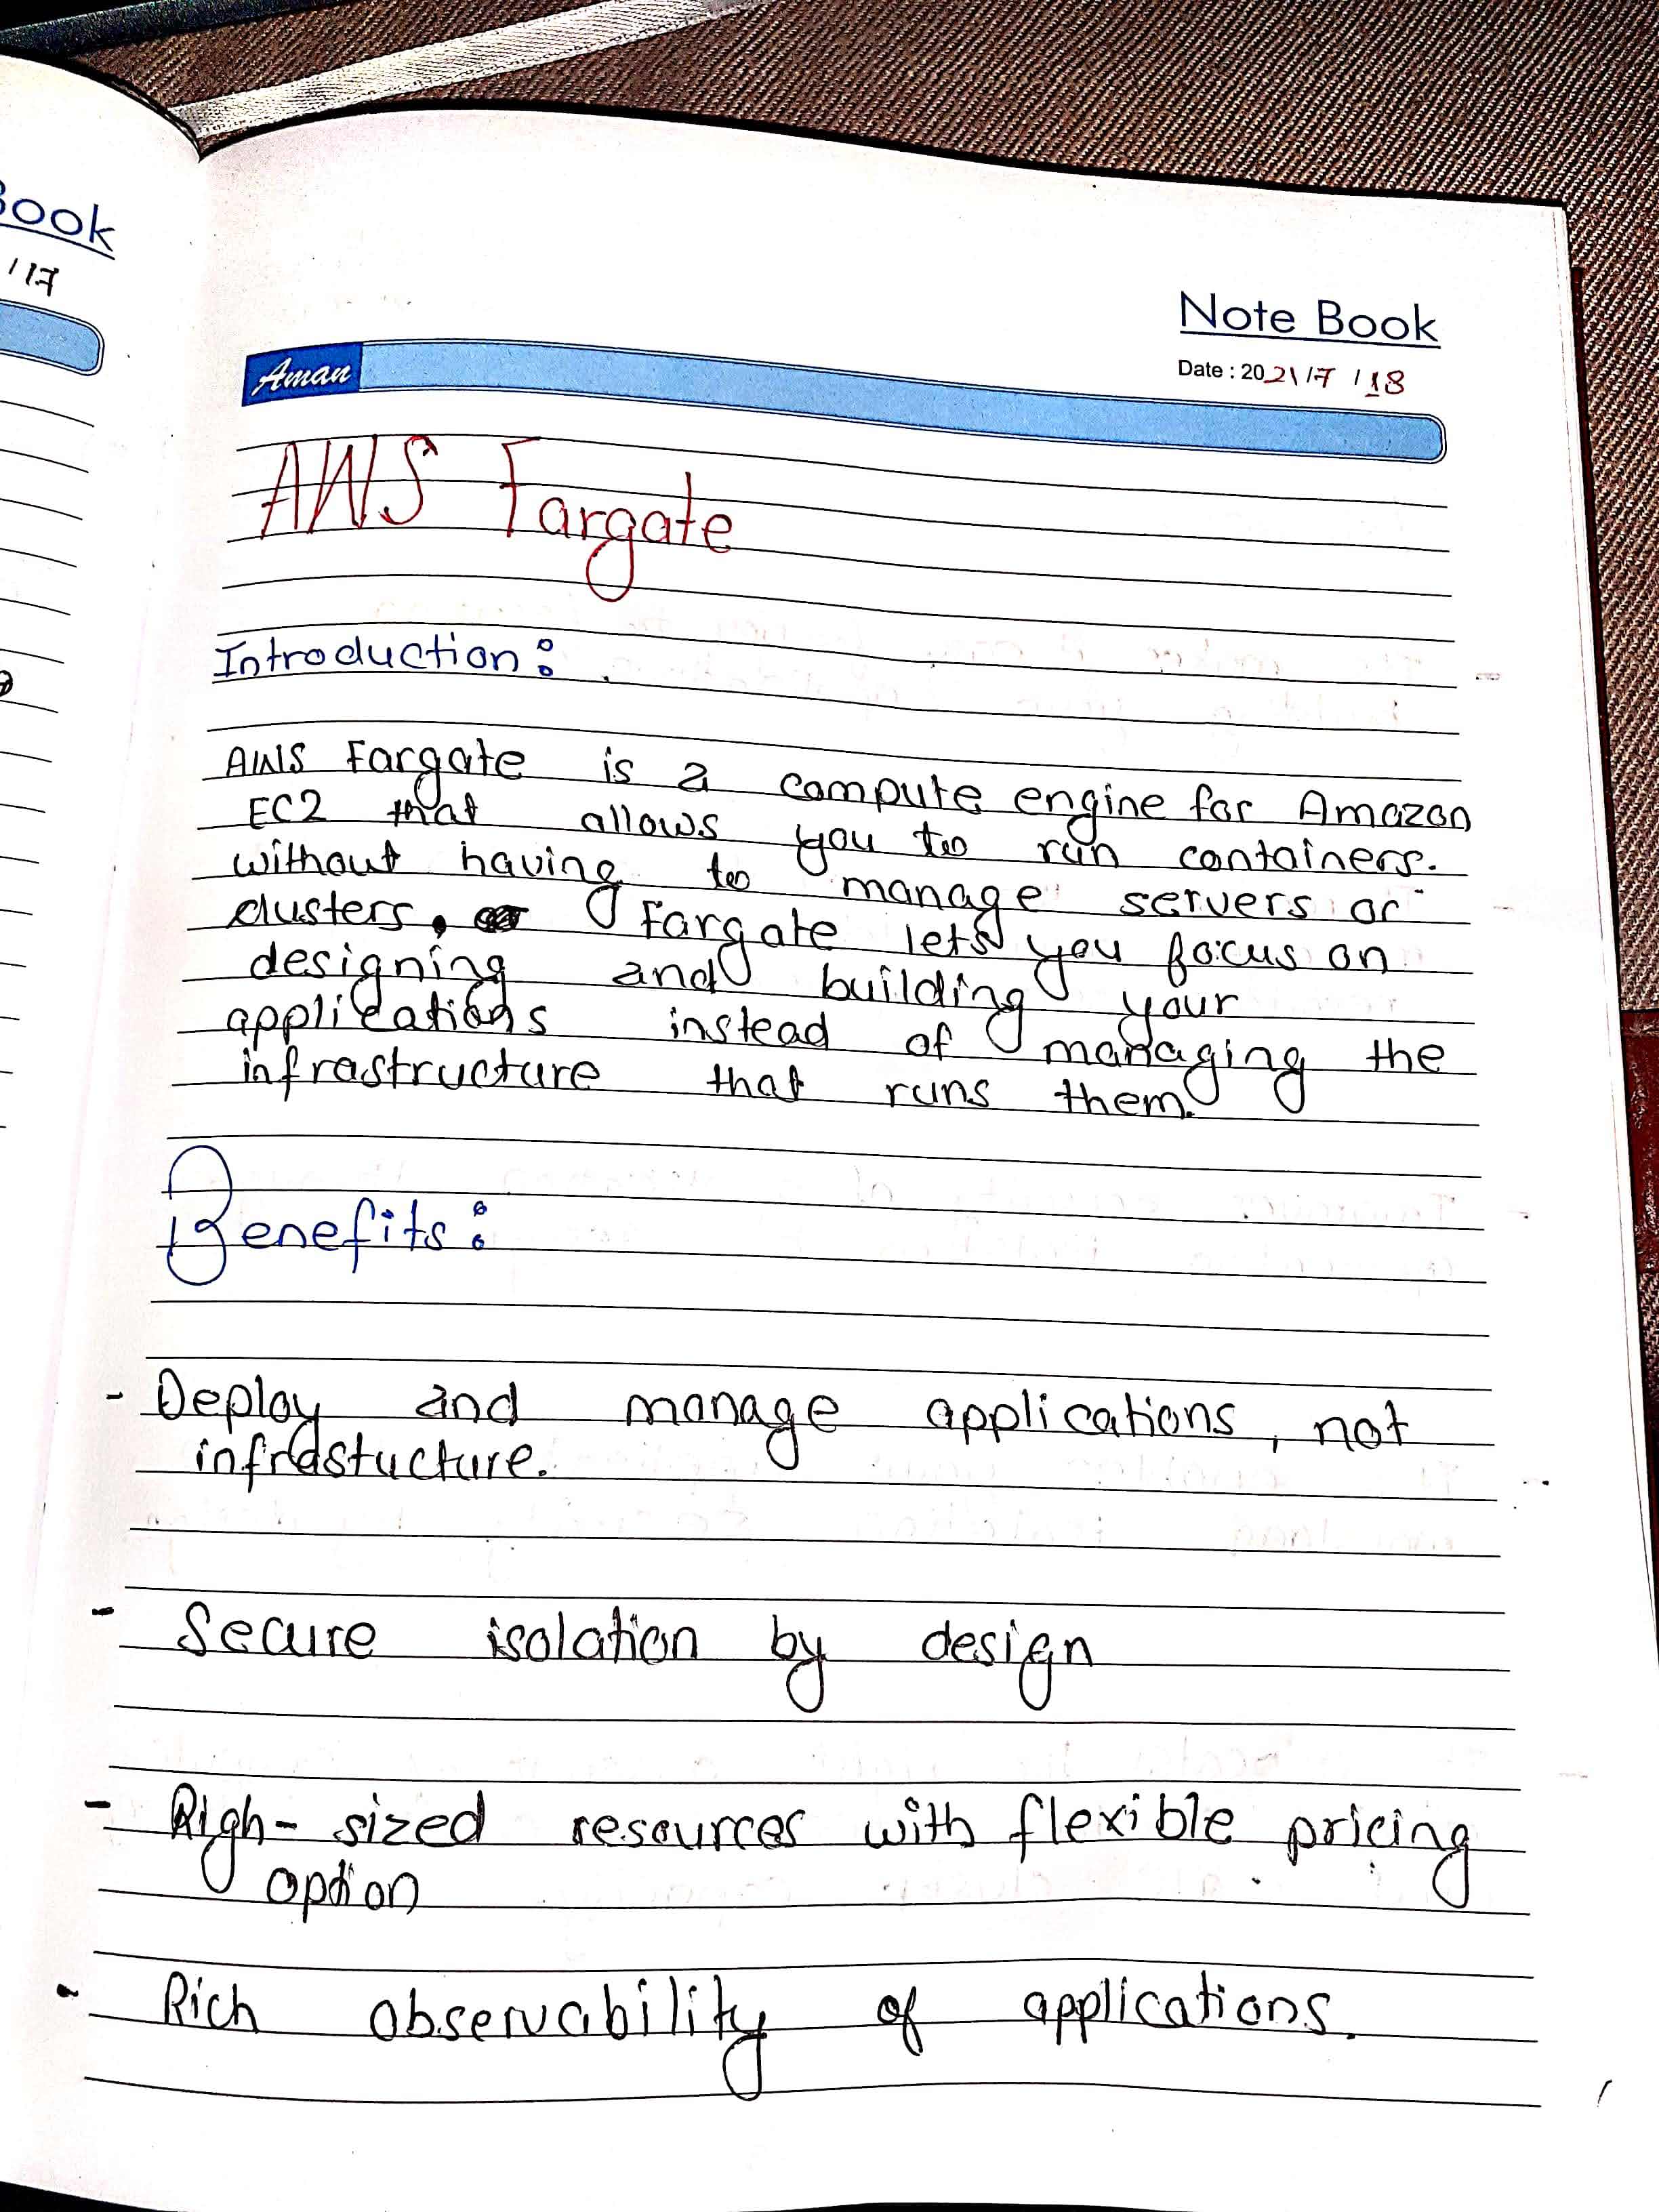 Book
/17
Note Book
Date : 2021/7/18
Aman
AWS Fargate
Introduction:
AWS Fargate is a compute engine for Amazon
EC2 that allows you to run containers.
without having to manage servers or
clusters. Fargate lets you focus on
designing and building your
applications instead of managing the
infrastructure that runs them.
Benefits:
- Deploy and manage applications, not
infrastucture.
- Secure isolation by design
- Righ-sized resources with flexible pricing
option
- Rich observability of applications.